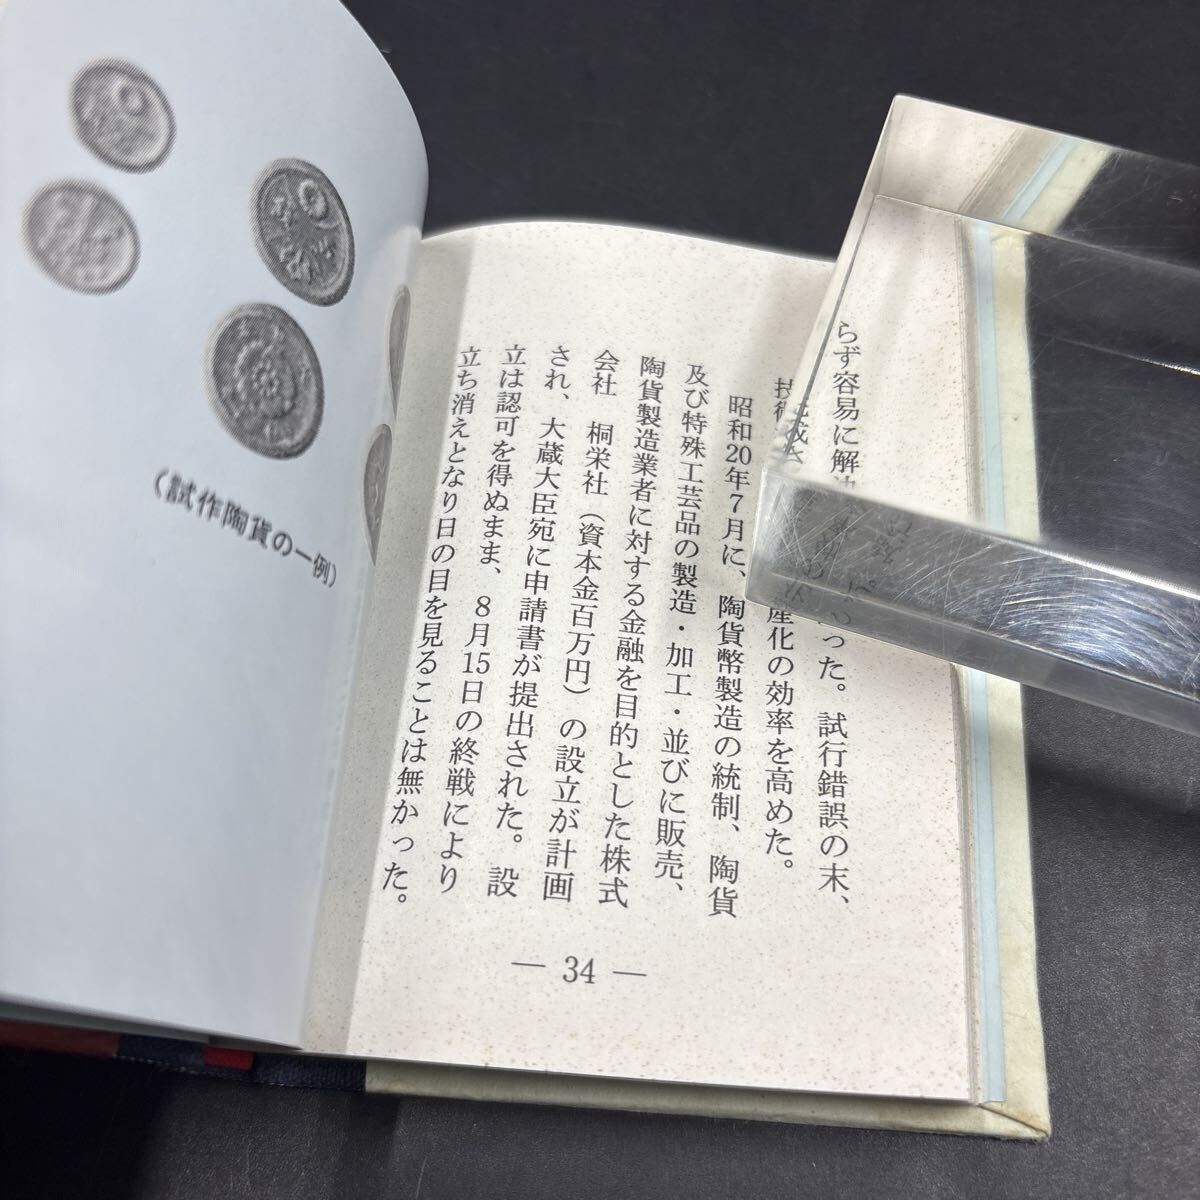 らず容易に解決
った。試行錯誤の末、
技術
産化の効率を高めた。
昭和20年7月に、陶貨幣製造の統制、陶貨
及び特殊工芸品の製造・加工・並びに販売、
陶貨製造業者に対する金融を目的とした株式
会社　桐栄社（資本金百万円）の設立が計画
され、大蔵大臣宛に申請書が提出された。設
立は認可を得ぬまま、8月15日の終戦により
立ち消えとなり日の目を見ることは無かった。
― 34 ―
（試作陶貨の一例）